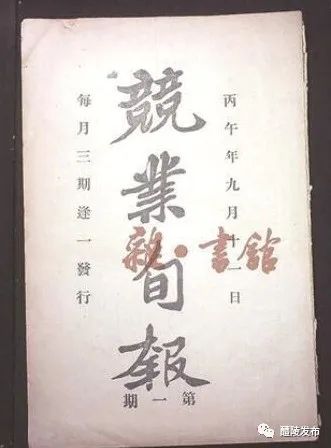 丙午年九月十一日
競業旬報
第一期
每月三期逢一發行
書館
醴陵发布